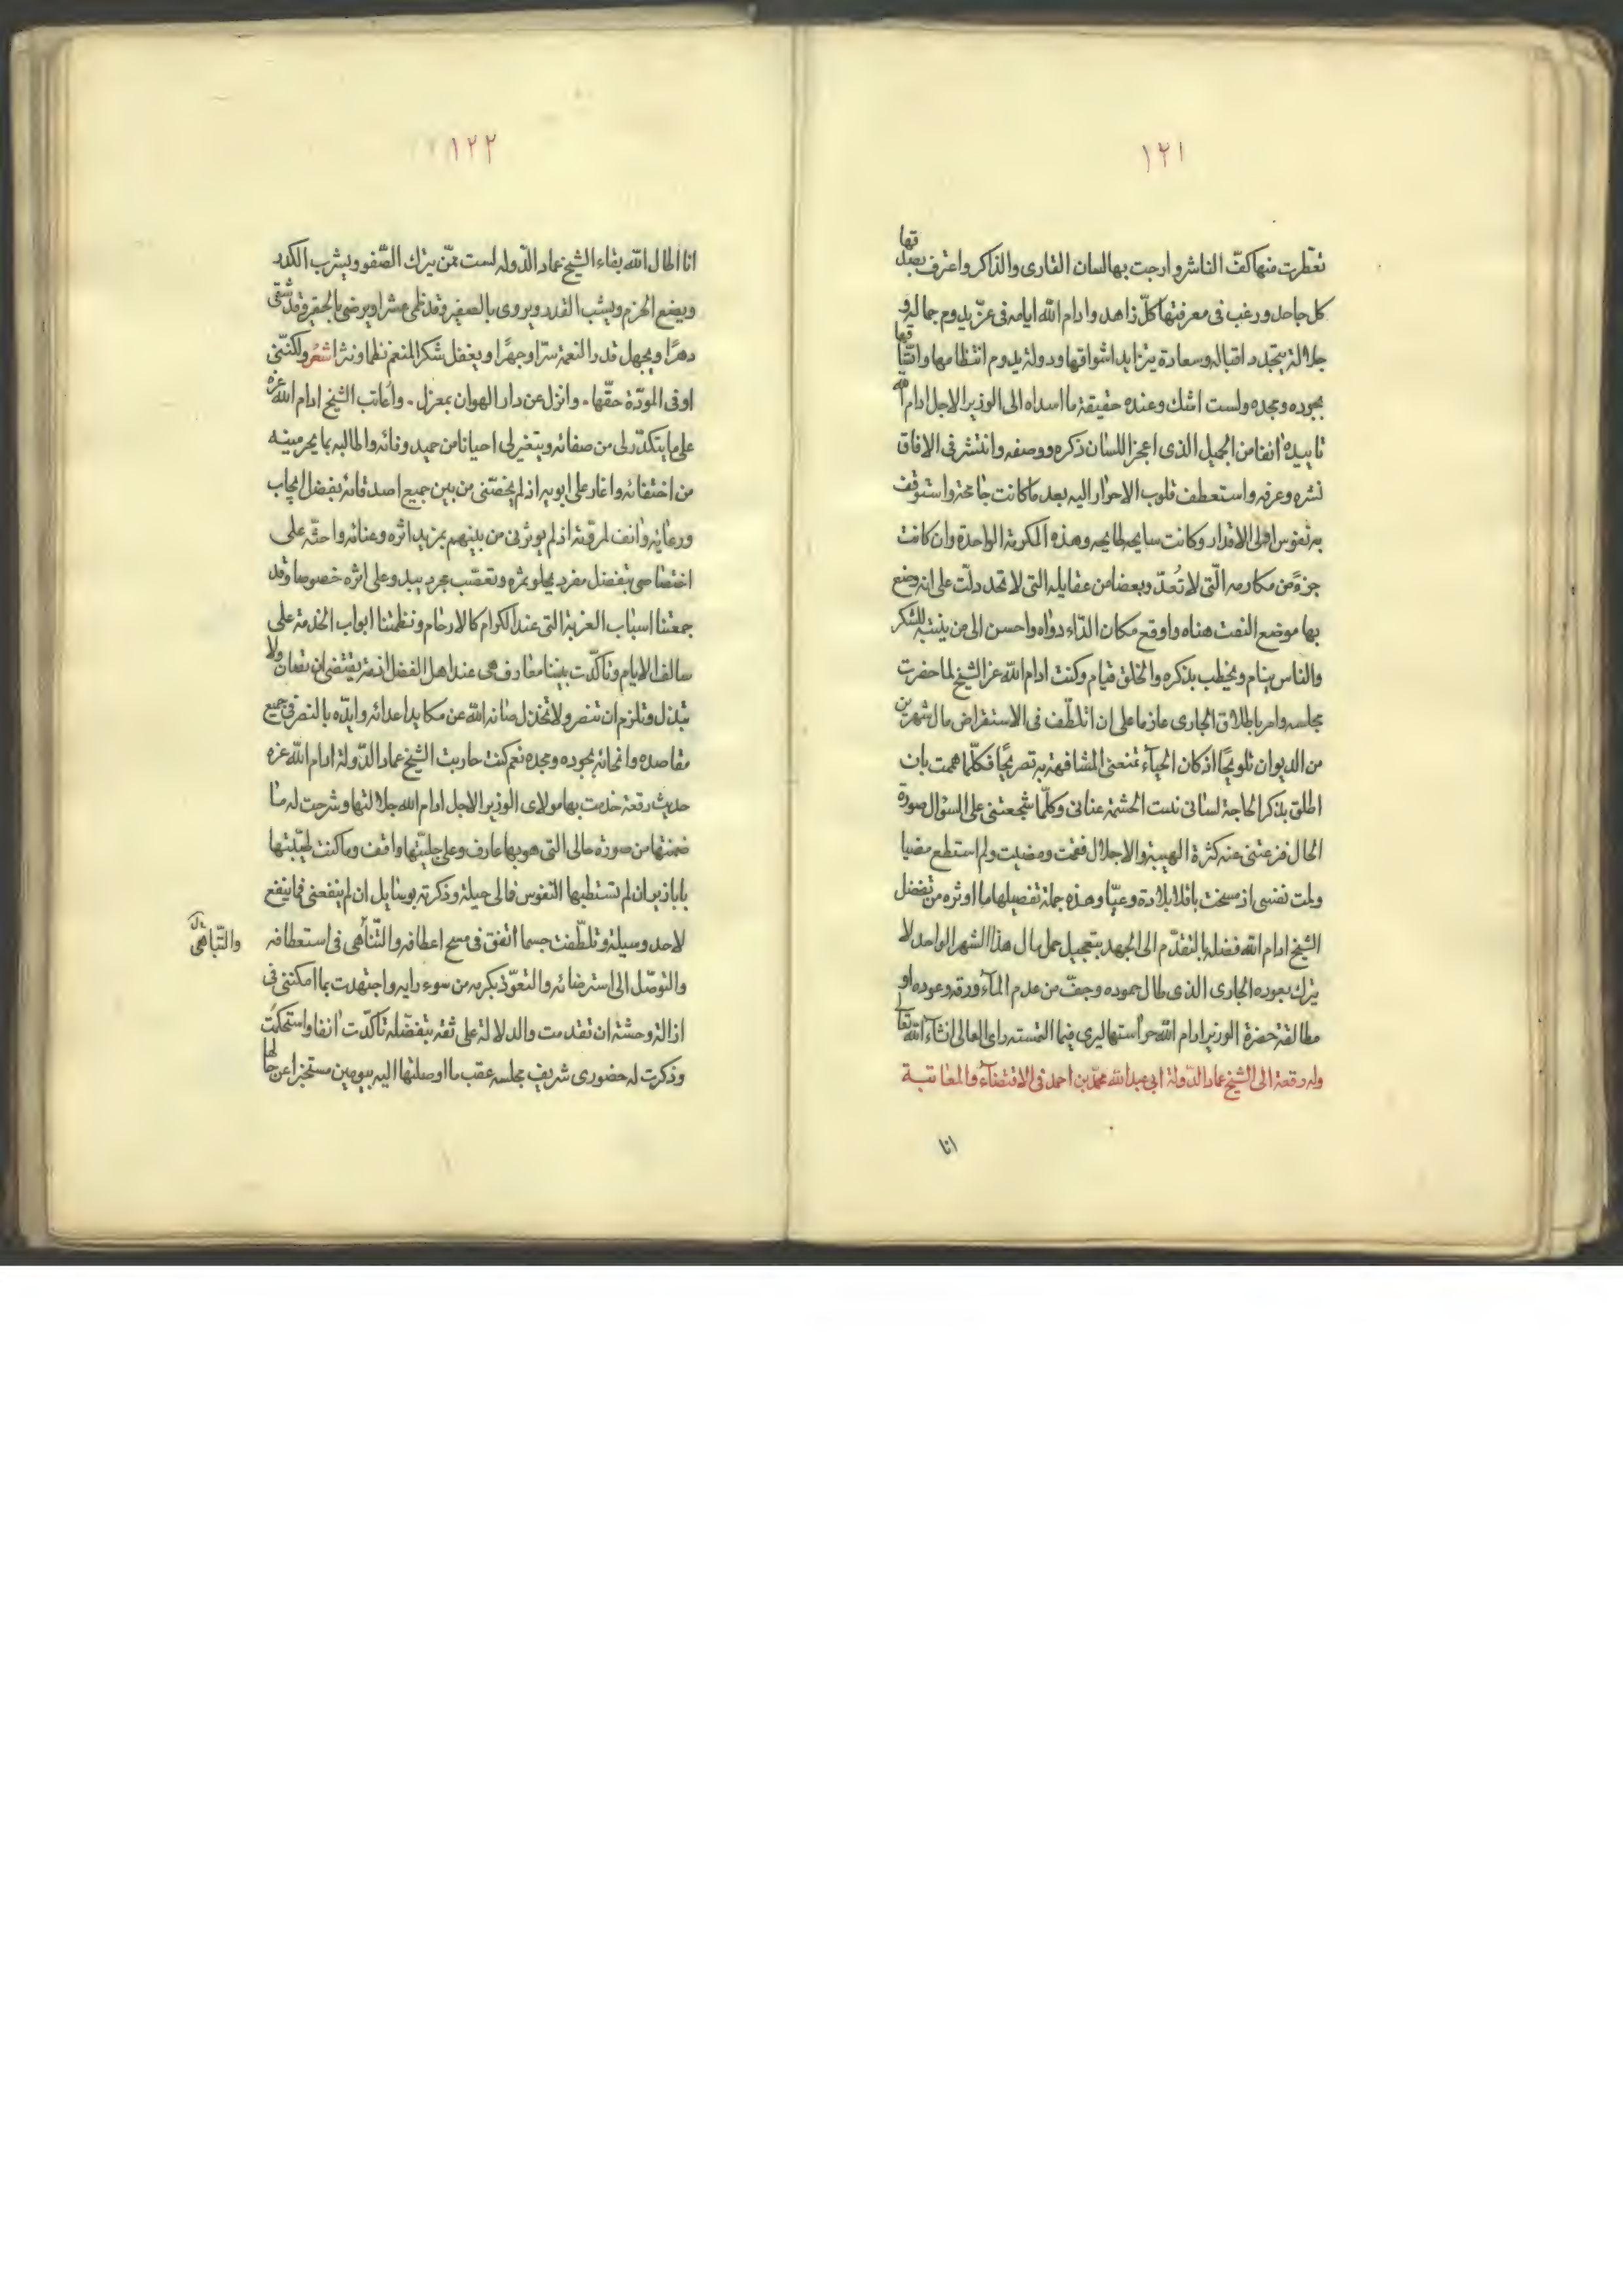 ١٢١
تعطرت منها كفّ الناشر وارجت بها لسان القارى والذاكر واعترف بصدقها
كل جاحد ورغب فى معرفتها كلّ زاهد وادام الله ايامه فى عزّ يدوم جماله و
جلالة يتجدد اقباله وسعادة يتزايد اشواقها ودولة يدوم انتظامها واتساقها
بجوده ومجده ولست اشك وعنده حقيقة ما اسداه الى الوزير الاجل ادام الله
تاييده انفا من الجميل الذى اعجز اللسان ذكره ووصفه وانتشر فى الافاق
نشره وعرفه واستعطف قلوب الاحرار اليه بعد ما كانت جامحة واستوقف
به نفوس اولى الاقدار وكانت سايحه طايحه وهذه المكرمة الواحدة وان كانت
جزءً من مكارمه الّتى لا تُعدّ وبعضا من عقايله التى لا تحد دلّت على انه وضع
بها موضع النقب هناه واوقع مكان الدّاء دواه واحسن الى من ينتبه للشكر
والناس نيام ويخطب بذكره والخلق قيام وكنت ادام الله عز الشيخ لما حضرت
مجلسه وامر باطلاق الجارى عازما على ان اتلطّف فى الاستقراض مال شهرين
من الديوان تلويحًا اذ كان الحيآء تمنعنى المشافهة به تصريحًا فكلّما هممت بان
اطلق بذكر الحاجة لسانى ندت الحشمة عنانى وكلّما شجعتنى على السؤال صورة
الحال فزعتنى عنه كثرة الهيبة والاجلال فقمت ومضيت ولم استطع مضيا
ولمت نفسى اذ مسخت باقلا بلادة وعيّا وهذه جملة تفصيلها ما اوثره من تفضل
الشيخ ادام الله فضله بالتقدّم الى الجهبد بتعجيل حمل مال هذا الشهر الواحد لا
يترك بعوده الجارى الذى طال جموده وجفّ من عدم المآء ورقه وعوده او
مطالعة حضرة الوزير ادام الله حراستها ليرى فيما التمسته راى العالى انشآء الله تعالى
وله رقعة الى الشيخ عماد الدّولة ابى عبد الله محمّد بن احمد فى الاقتضآء والمعاتبة
انا
١٢٢
انا اطال الله بقاء الشيخ عماد الدّوله لست ممّن يترك الصّفو ويشرب الكدر
ويضع الحزم ويشب القدر ويروى بالصفير وقد ظمى عشرا ويرضى بالحقير وقد شقى
دهرًا ويجهل قدر النعمة سرّا وجهرًا ويغفل شكر المنعم نظما ونثرا شعر ولكنّنى
اوفى المودّة حقّها . وانزل عن دار الهوان بمعزل . واُعاتب الشيخ ادام الله عزه
على ما يتكدّر لى من صفائه ويتغير لى احيانا من حميد وفائه واطالبه بما يحرمينه
من اختفائه واغار على ابويه اذ لم يخصّنى من بين جميع اصدقائه بفضل ايجاب
ورعايه وانف لمرقته اذ لم يوثرنى من بينهم بمزيد اثره وعنائه واحثه على
اختصاصى بتفضل مفرد يحلو ثمره وتعصّب مجرد يبدو على اثره خصوصا وقد
جمعتنا اسباب الغربة التى عند الكرام كالارحام ونظمتنا ابواب الخدمة على
سالف الايام وتاكّدت بيننا معارف هى عند اهل الفضل اذمة يقتضى ان تصان ولا
تبتذل وتلزم ان تنصر ولا تخذل صانه الله عن مكايد اعدائه وايدّه بالنصر فى جميع
مقاصده وانحائه بجوده ومجده نعم كنت حاربت الشيخ عماد الدّولة ادام الله عزه
حديث رقعة خدمت بها مولاى الوزير الاجل ادام الله جلالتها وشرحت له ما
ضمنتها من صورة حالى التى هو بها عارف وعلى جليّتها واقف وما كنت لجبّلتها
بابازير ان لم تستطبها النفوس فمالى حيلة وذكرته بوسايل ان لم ينفعنى فما ينفع
لاحد وسيلة وتلطّفت جسما اتفق فى مسح اعطافه والتّناهى فى استعطافه
والتّباهى
والتوصّل الى استرضائه والتعوّذ بكرمه من سوء رايه واجتهدت بما امكننى فى
ازالة وحشة ان تقدمت والدلالة على ثقة بتفضّله تاكّدت انفا واستحكمت
وذكرت له حضورى شريف مجلسه عقب ما اوصلتها اليه بيومين مستخبرا عن حالها